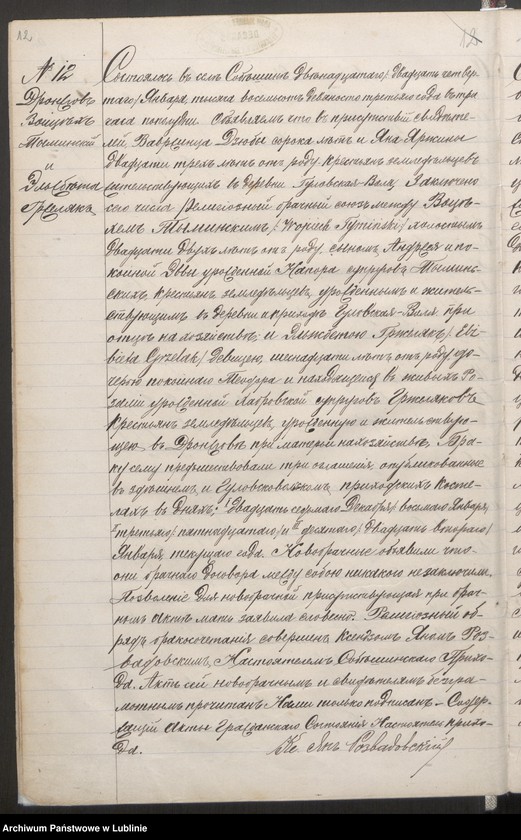 12
12
№ 12
Дронцовъ
Войцехъ
Тыминскій
и
Эльжбета
Гржелякъ
Состоялось въ селѣ Собѣшинъ двѣнадцатаго / двадцать четвер-
таго / Января, тысяча восемьсотъ девяносто третьяго года въ три
часа пополудни. Объявляемъ что въ присутствіи свидѣте-
лей Вавржинца Дзюбы сорока лѣтъ и Яна
двадцати трехъ лѣтъ отъ роду, крестьянъ земледѣльцевъ
жительствующихъ въ деревни Гуловская-Воля, заключенъ
сего числа религіозный брачный союзъ между Войцѣ-
хомъ Тыминскимъ / Wojciech Tymiński / холостымъ
двадцати двухъ лѣтъ отъ роду, сыномъ Андрея и по-
койной Евы урожденной Капора супруговъ Тыминь-
скихъ, крестьянъ земледѣльцевъ, урожденнымъ и житель-
ствующимъ въ деревни и приходѣ Гуловская-Воля при
отцѣ на хозяйствѣ; и Эльжбетою Гржелякъ / Elż-
bieta Grzelak / девицею, шестнадцати лѣтъ отъ роду, до-
черью покойнаго Теодора и находящейся въ живыхъ Ро-
заліи урожденной супруговъ Гржеляковъ
крестьянъ земледѣльцевъ, урожденную и жительствую-
щею въ Дронцовѣ при матери на хозяйствѣ. Бра-
ку сему предшествовали три оглашенія, опубликованные
въ здѣшнемъ и Гуловсковольскомъ приходскихъ косте-
лахъ въ дняхъ: I двадцать седьмаго Декабря / восьмаго Января,
II третьяго / пятнадцатаго / и III десятаго / двадцать втораго /
Января текущаго года. Новобрачные объявили что
они брачнаго договора между собою никакого не заключили.
Позволеніе для новобрачной присутствующая при брач-
номъ актѣ мать заявила словесно. Религіозный об-
рядъ бракосочетанія совершенъ Ксендзомъ Яномъ Роз-
вадовскимъ, Настоятелемъ Собѣшинскаго Прихо-
да. Актъ сей новобрачнымъ и свидѣтелямъ неграм-
мотнымъ прочитанъ, Нами только подписанъ. – Содер-
жащій Акты Гражданскаго Состоянія Настоятель прихо-
да. Кс Янъ Розвадовскій
Archiwum Państwowe w Lublinie